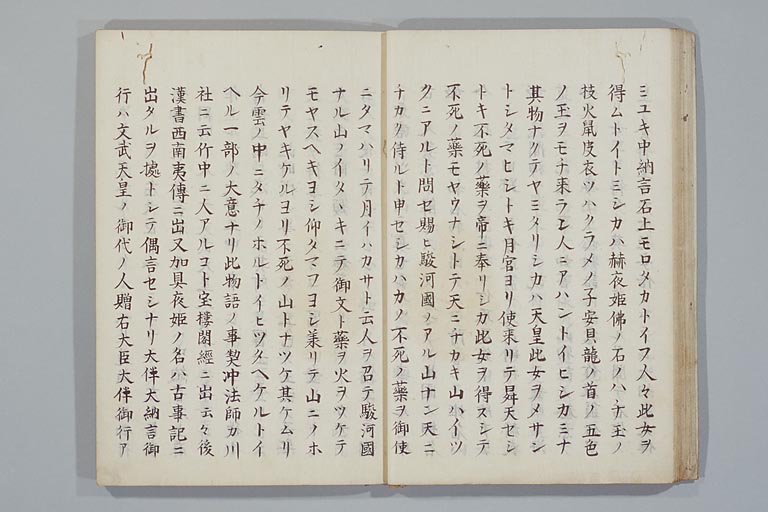 ミユキ中納言石上モロタカトイフ人々此女ヲ
得ムトイトミシカハ赫夜姫佛ノ石ノハチ玉ノ
枝火鼠皮衣ツハクラメノ子安貝龍ノ首ノ五色
ノ玉ヲモチ来ラン人ニアハントイヒシカミナ
其物ナクテヤミタリシカハ天皇此女ヲメサン
トシタマヒシトキ月宮ヨリ使来リテ昇天セシ
トキ不死ノ藥ヲ帝ニ奉リシカ此女ヲ得スシテ
不死ノ藥モヤウナシトテ天ニチカキ山ハイツ
クニアルト問セ賜ヒ駿河國ノアル山ナン天ニ
チカク侍ルト申セシカハカノ不死ノ藥ヲ御使
ニタマハリテ月イハカサト云人ヲ召テ駿河國
ナル山ノイタヽキニテ御文ト藥ヲ火ヲツケテ
モヤスヘキヨシ仰タマフヨシ羕リテ山ニノホ
リテヤキケルヨリ不死ノ山トナツケ其ケムリ
今雲ノ中ニタチノホルトイヒツタヘケルトイ
ヘル一部ノ大意ナリ此物語ノ事契冲法師カ川
社ニ云竹中ニ人アルコト宝樓閣經ニ出云々後
漢書西南夷傳ニ出又加具夜姫ノ名ハ古事記ニ
出タルヲ據トシテ偶言セシナリ大伴大納言御
行ハ文武天皇ノ御代ノ人贈右大臣大伴御行ア